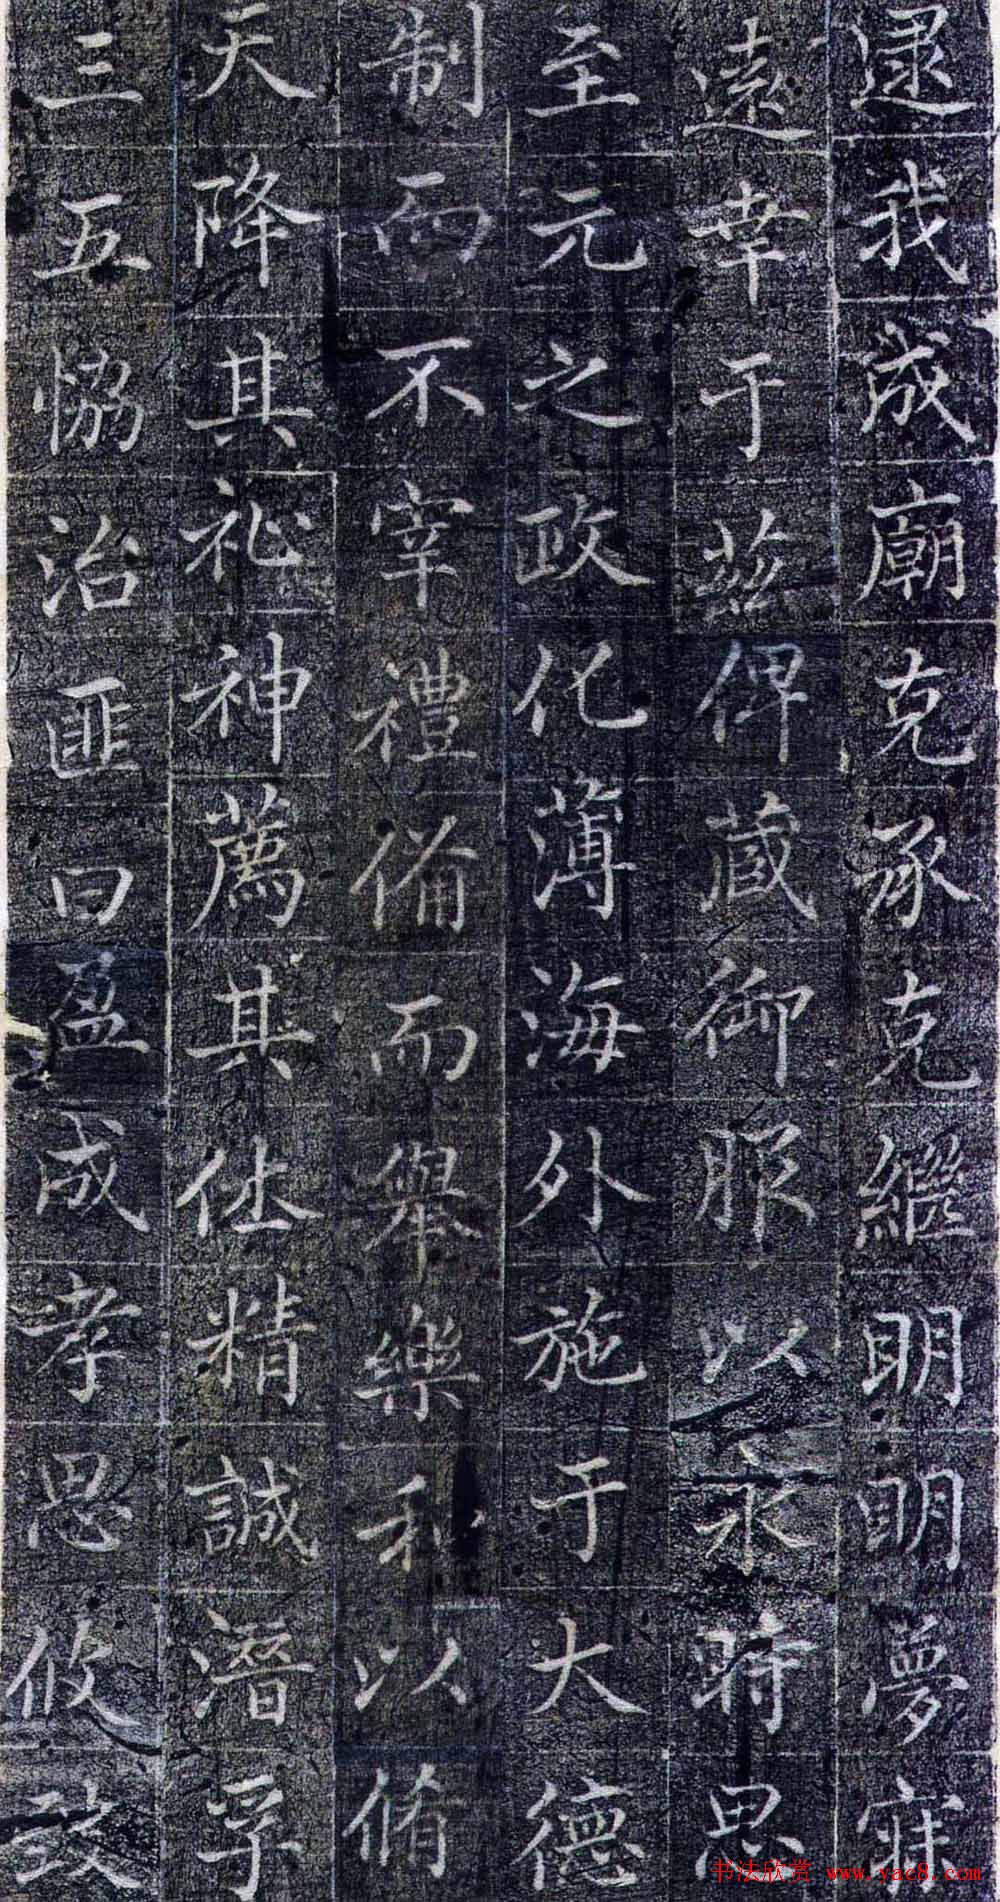 逯我成廟克承克繼明明夢寐
遠幸于茲俾藏御服以永時思
至元之政化薄海外施于大德
制而不宰禮備而舉樂和以脩
天降其祉神薦其休精誠潛孚
三五協治匪曰盈成孝思攸致
书法欣赏 www.yac8.com